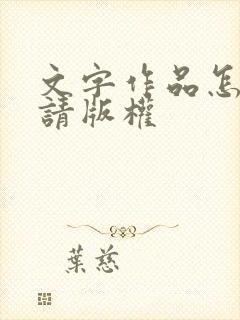 文字作品怎
請版權
葉慈